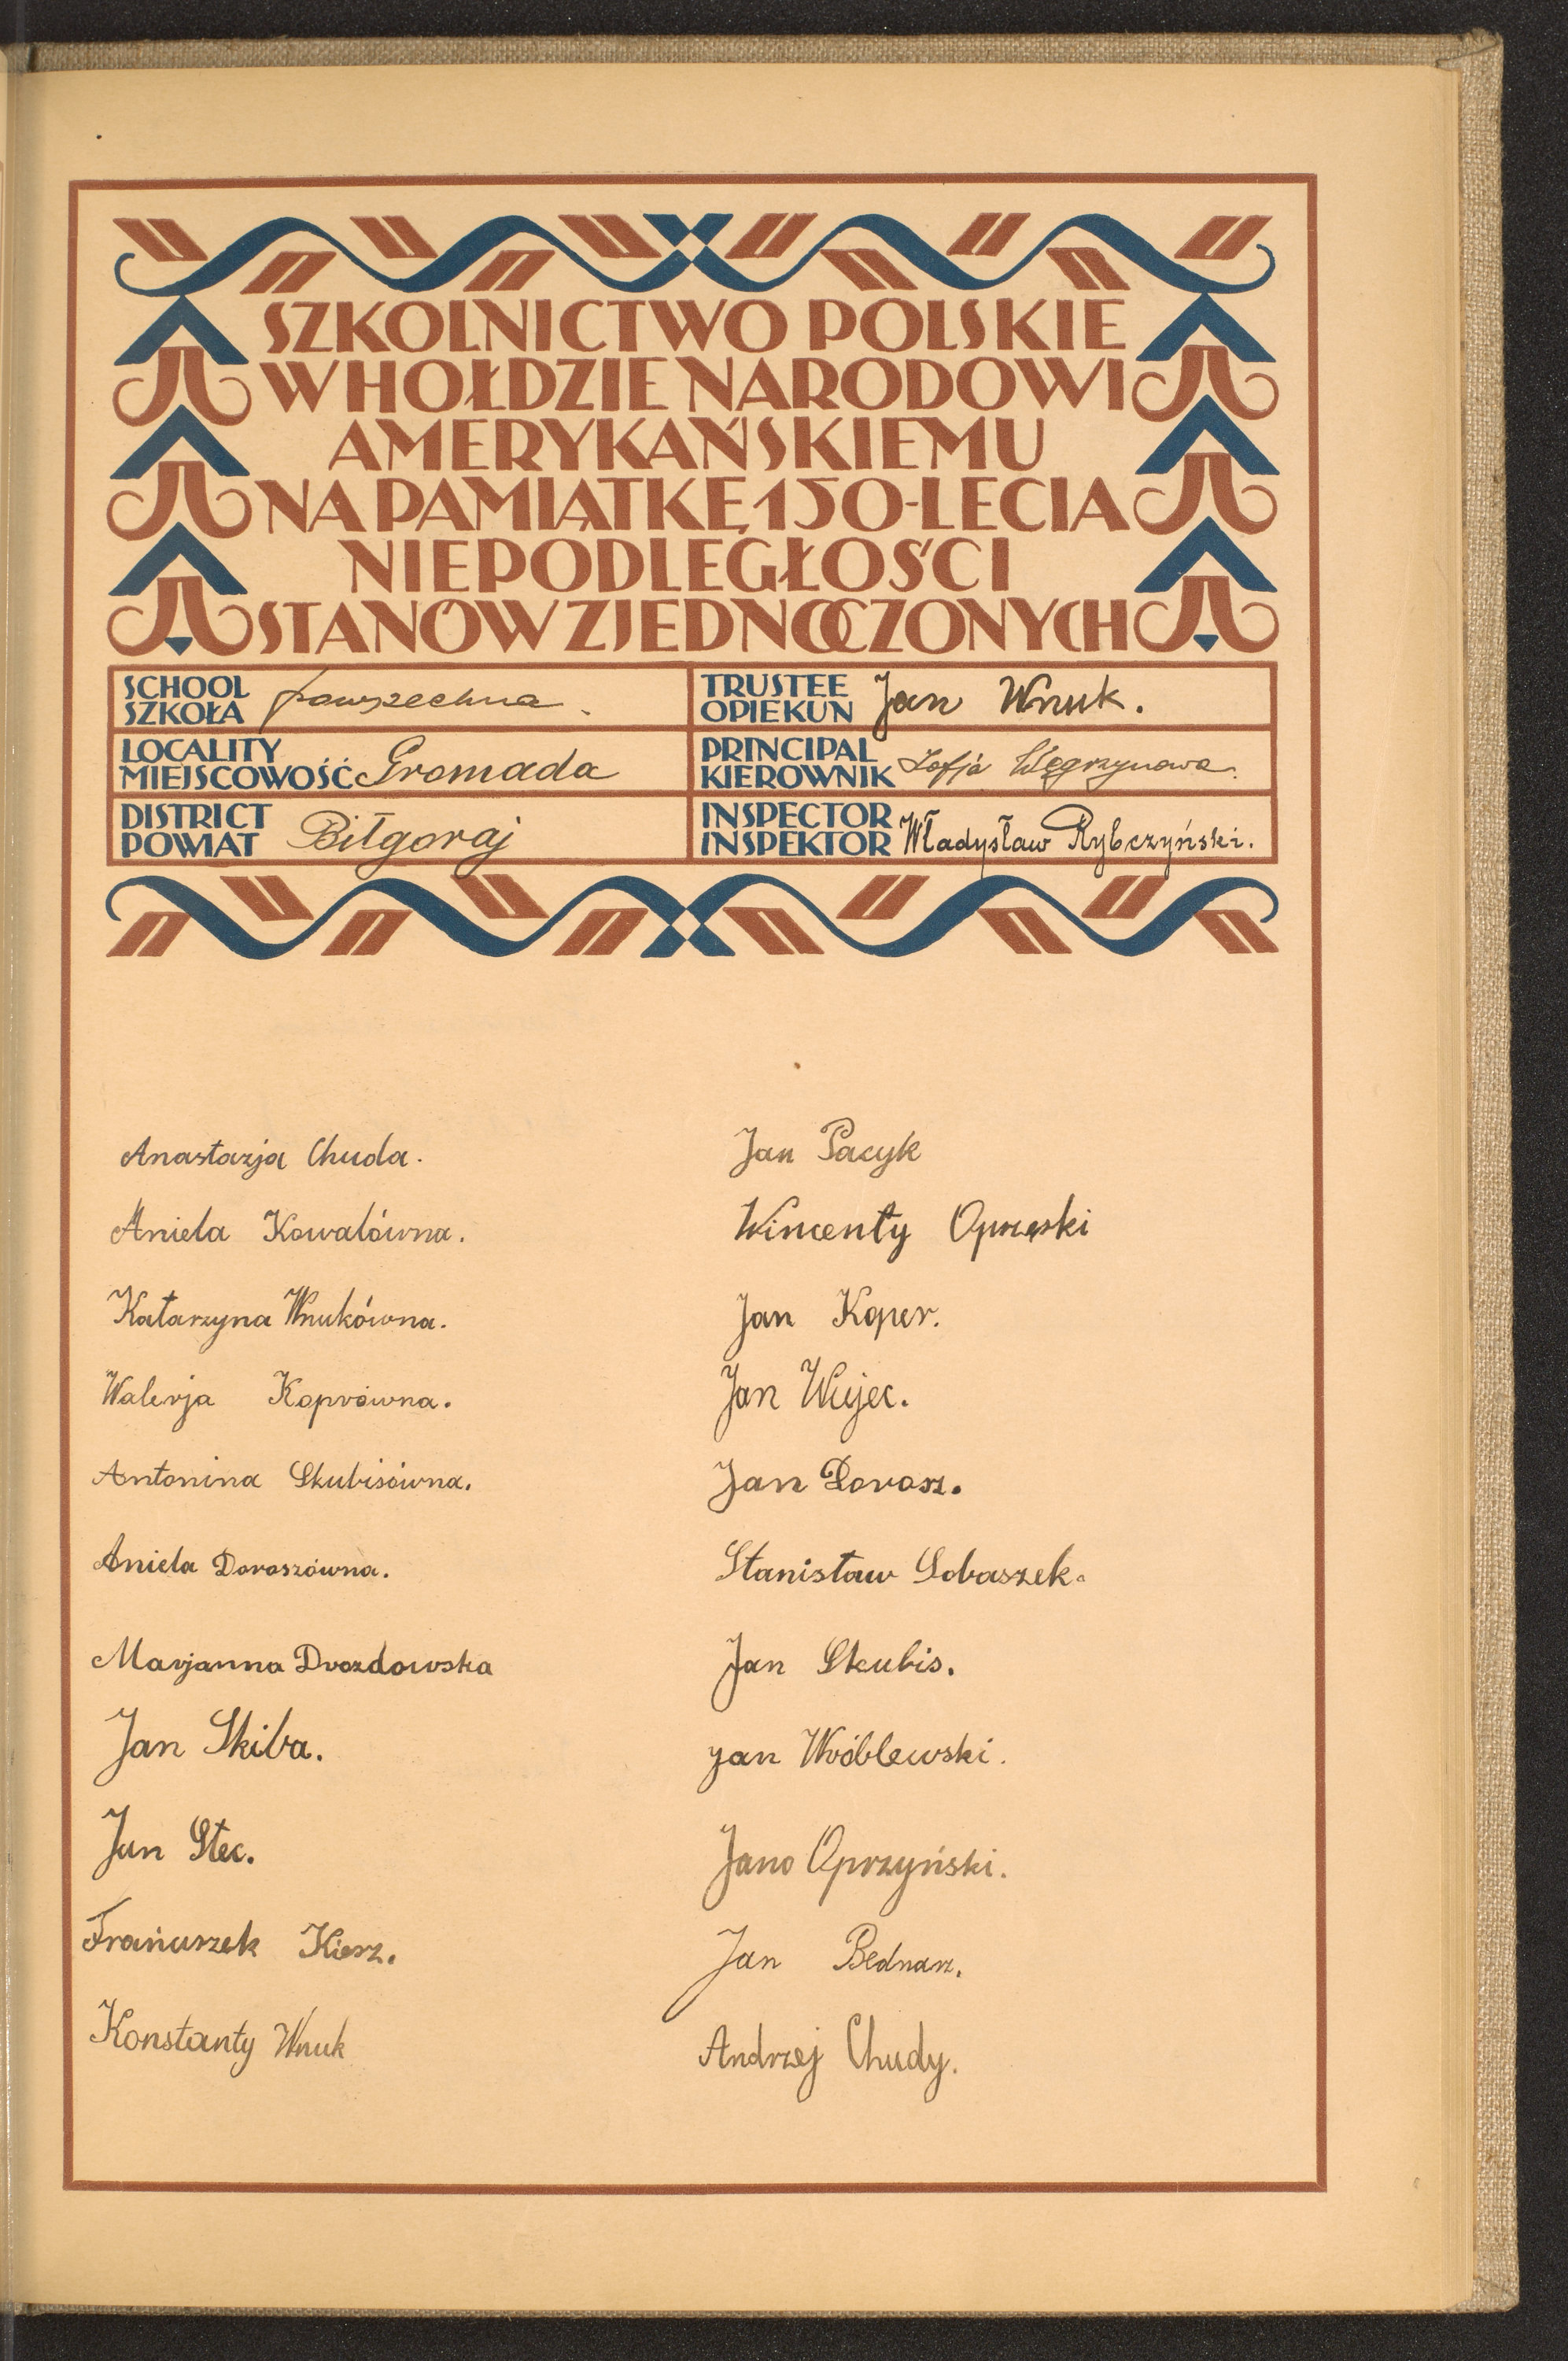 SZKOLNICTWO POLSKIE
W HOŁDZIE NARODOWI
AMERYKAŃSKIEMU
NA PAMIĄTKĘ 150-LECIA
NIEPODLEGŁOŚCI
STANÓW ZJEDNOCZONYCH
SCHOOL
SZKOŁA powszechna.
TRUSTEE
OPIEKUN Jan Wnuk.
LOCALITY
MIEJSCOWOŚĆ Gromada
PRINCIPAL
KIEROWNIK Zofja Węgrzynowa.
DISTRICT
POWIAT Biłgoraj
INSPECTOR
INSPEKTOR Władysław Rybczyński.
Anastazja Chuda.
Aniela Kowalówna.
Katarzyna Wnukówna.
Walerja Koprówna.
Antonina Skubisówna.
Aniela Doroszówna.
Marjanna Drozdowska
Jan Skiba.
Jan Stec.
Franciszek Kiesz.
Konstanty Wnuk
Jan Pacyk
Wincenty
Jan Koper.
Jan Wujec.
Jan Dorosz.
Stanisław Sobaszek.
Jan Skubis.
Jan Wróblewski.
Jano Oprzyński.
Jan Bednarz.
Andrzej Chudy.